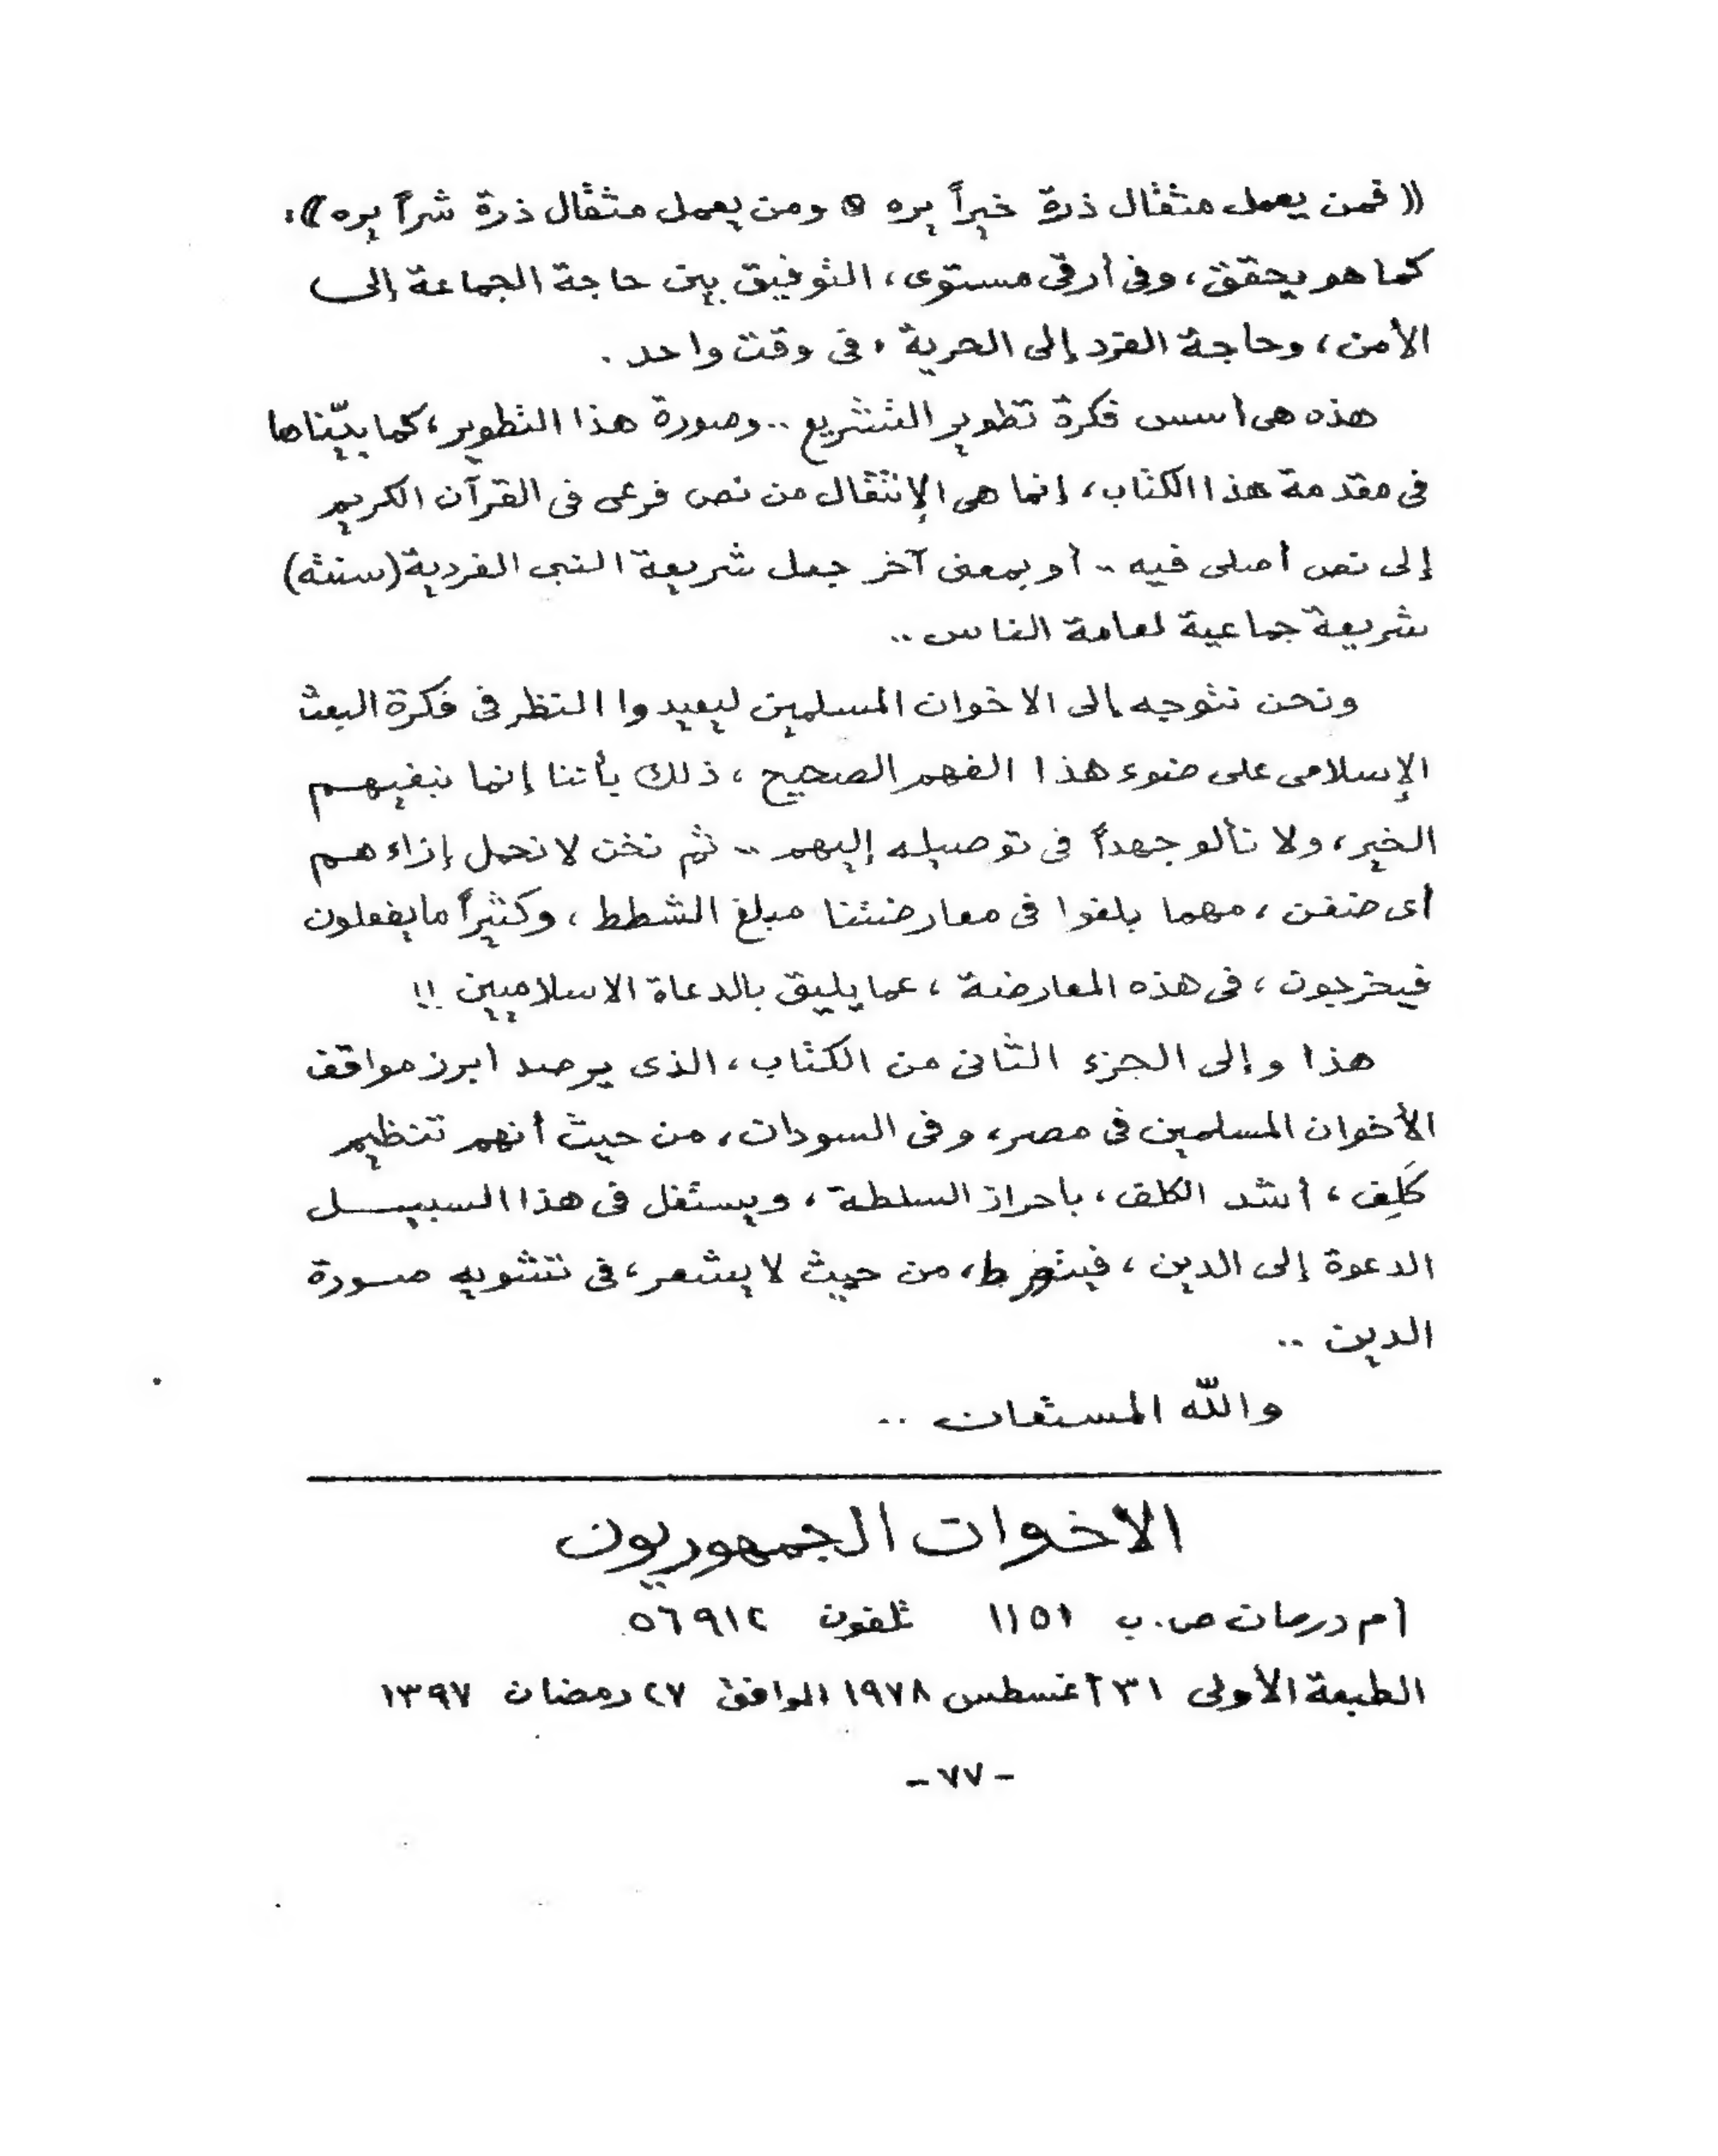 ((فمن يعمل مثقال ذرة خيراً يره ۞ ومن يعمل مثقال ذرة شراً يره))،
كما هو يحقق، وفى أرقى مستوى، التوفيق بين حاجة الجماعة إلى
الأمن، وحاجة الفرد إلى الحرية، فى وقت واحد.
هذه هى أسس فكرة تطوير التشريع .. وصورة هذا التطوير، كما بيّناها
فى مقدمة هذا الكتاب، إنما هى الإنتقال من نص فرعى فى القرآن الكريم
إلى نص أصلى فيه .. أو بمعنى آخر جعل شريعة النبى الفردية (سنته)
شريعة جماعية لعامة الناس ..
ونحن نتوجه إلى الاخوان المسلمين ليعيدوا النظر فى فكرة البعث
الإسلامى على ضوء هذا الفهم الصحيح، ذلك بأننا إنما نبغيهم
الخير، ولا نألو جهداً فى توصيله إليهم .. ثم نحن لا نحمل إزاءهم
أى ضغن، مهما بلغوا فى معارضتنا مبلغ الشطط، وكثيراً ما يفعلون
فيخرجون، فى هذه المعارضة، عما يليق بالدعاة الاسلاميين !!
هذا وإلى الجزء الثانى من الكتاب، الذى يرصد أبرز مواقف
الأخوان المسلمين فى مصر، وفى السودان، من حيث أنهم تنظيم
كَلِف، أشد الكلف، باحراز السلطة، ويستغل فى هذا السبيل
الدعوة إلى الدين، فيتورط، من حيث لا يشعر، فى تشويه صورة
الدين ..
والله المستعان ..
الاخوان الجمهوريون
أم درمان ص.ب ١١٥١ تلفون ٥٦٩١٢
الطبعة الأولى ٣١ أغسطس ١٩٧٨ الموافق ٢٧ رمضان ١٣٩٧
-٧٧-